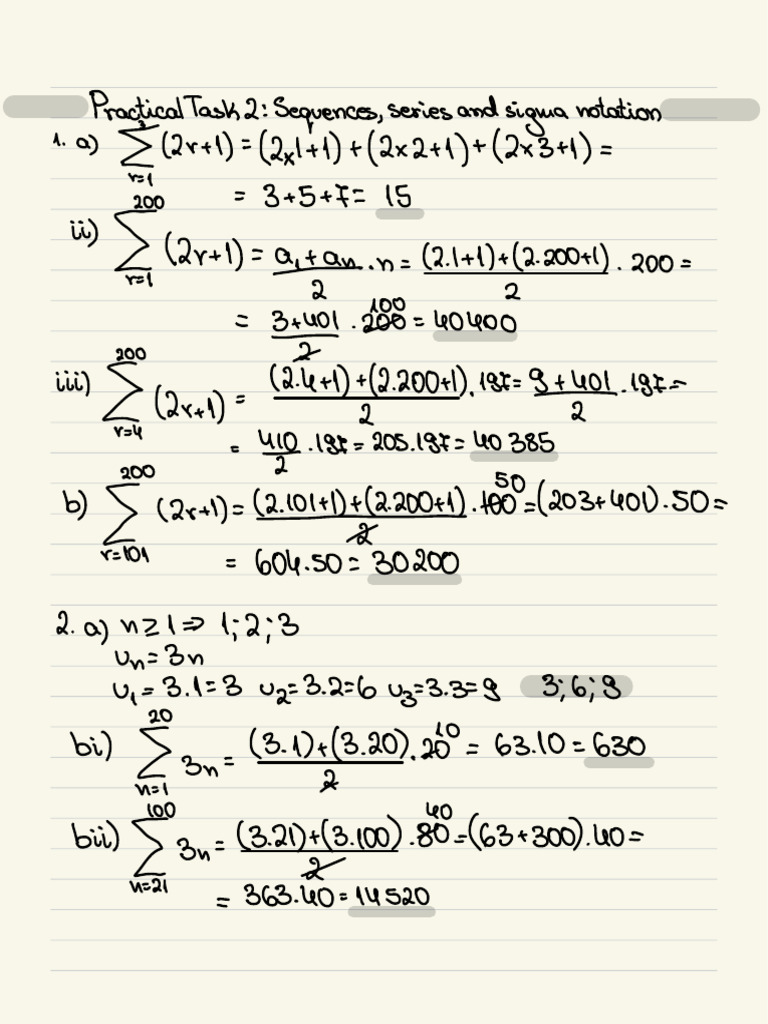 Practical Task 2: Sequences, series and sigma notation
1. a) ∑_{r=1} (2r+1) = (2×1+1) + (2×2+1) + (2×3+1) =
= 3+5+7= 15
ii) ∑_{r=1}^{200} (2r+1) = (a₁+aₙ)/2 . n = ((2.1+1)+(2.200+1))/2 . 200 =
= (3+401)/2 . 200 100 = 40400
iii) ∑_{r=4}^{200} (2r+1) = ((2.4+1)+(2.200+1))/2 . 197 = (9+401)/2 . 197 =
= 410/2 . 197 = 205.197 = 40 385
b) ∑_{r=101}^{200} (2r+1) = ((2.101+1)+(2.200+1))/2 . 100 50 = (203+401).50 =
= 604.50 = 30200
2. a) n≥1 ⇒ 1; 2; 3
uₙ = 3n
u₁ = 3.1=3 u₂=3.2=6 u₃=3.3=9 3; 6; 9
bi) ∑_{n=1}^{20} 3n = ((3.1)+(3.20))/2 . 20 10 = 63.10 = 630
bii) ∑_{n=21}^{100} 3n = ((3.21)+(3.100))/2 . 80 40 = (63+300).40 =
= 363.40 = 14 520